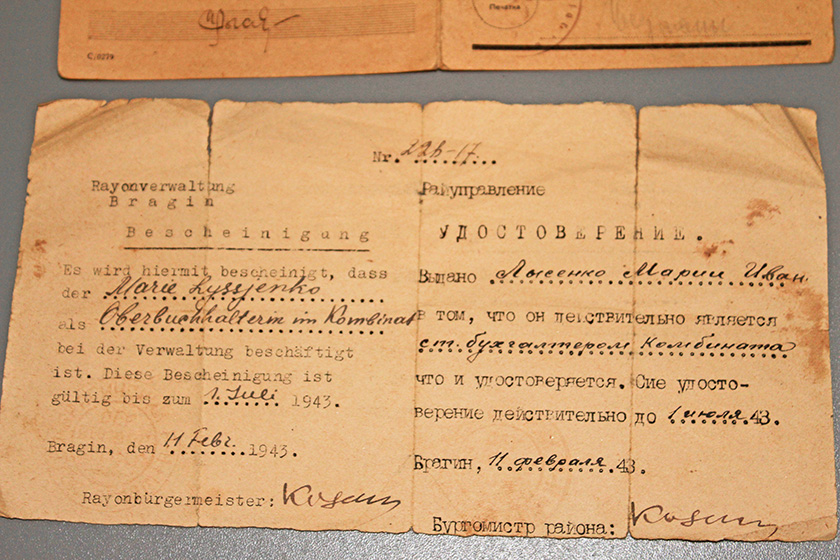 С/0279
Печатка
Nr. 226-17.
Rayonverwaltung
Bragin
Bescheinigung
Es wird hiermit bescheinigt, dass
der Marie Lyssjenko
als Oberbuchhalterin im Kombinat
bei der Verwaltung beschäftigt
ist. Diese Bescheinigung ist
gültig bis zum 1. Juli 1943.
Bragin, den 11 Febr. 1943.
Rayonbürgermeister:
Райуправление
УДОСТОВЕРЕНИЕ.
Выдано Лысенко Марии Иван
в том, что он действительно является
ст. бухгалтером Комбината
что и удостоверяется. Сие удосто-
верение действительно до 1 июля 43.
Брагин, 11 февраля 43.
Бургомистр района: